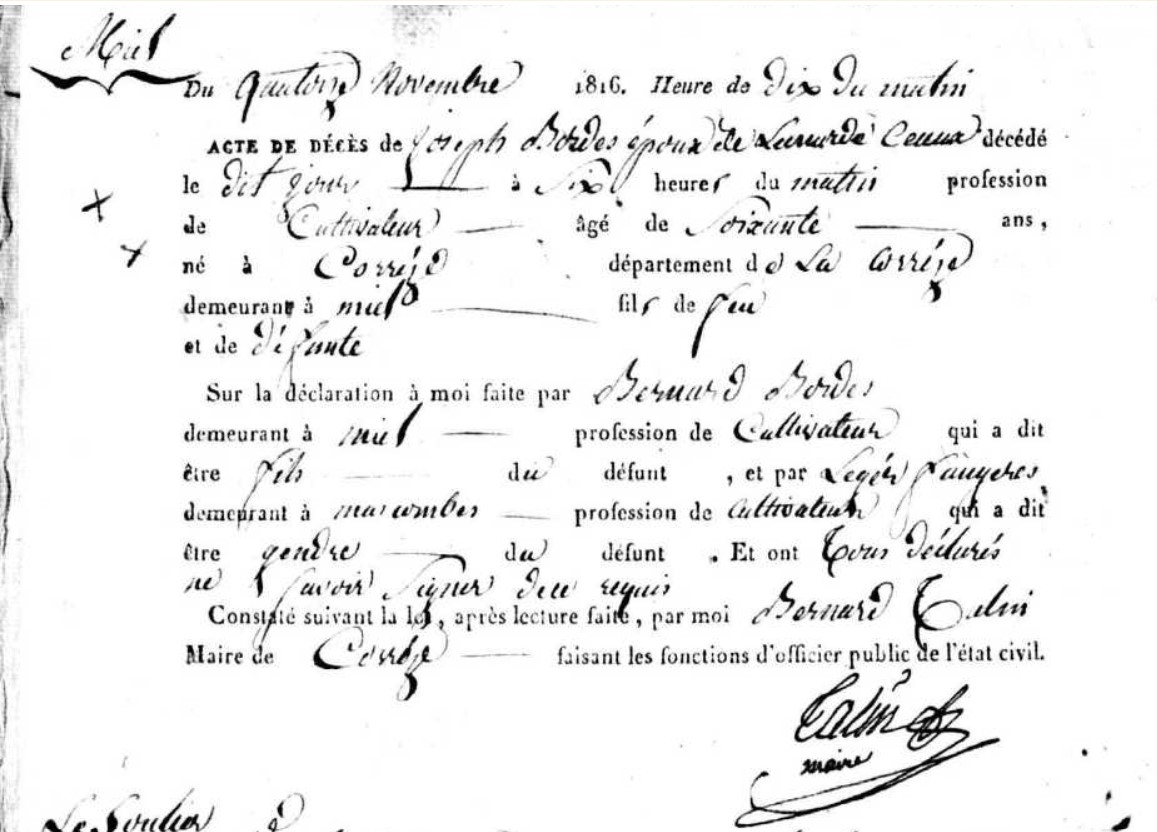 Miel
Du Quatorze Novembre 1816. Heure de dix du matin
ACTE DE DÉCÈS de Joseph Bordes époux de Lunarde Ceaux décédé
le dit jour à Six heures du matin profession
de Cultivateur âgé de Soixante ans,
né à Corrèze département de La Corrèze
demeurant à miel fils de feu
et de défunte
Sur la déclaration à moi faite par Bernard Bordes
demeurant à miel profession de Cultivateur qui a dit
être fils du défunt, et par Leger faugeres
demeurant à mascombes profession de Cultivateur qui a dit
être gendre du défunt. Et ont Tous déclarés
ne Savoir Signer de ce requis
Constaté suivant la loi, après lecture faite, par moi Bernard Talin
Maire de Corrèze faisant les fonctions d'officier public de l'état civil.
Talin
maire
Le Soulier